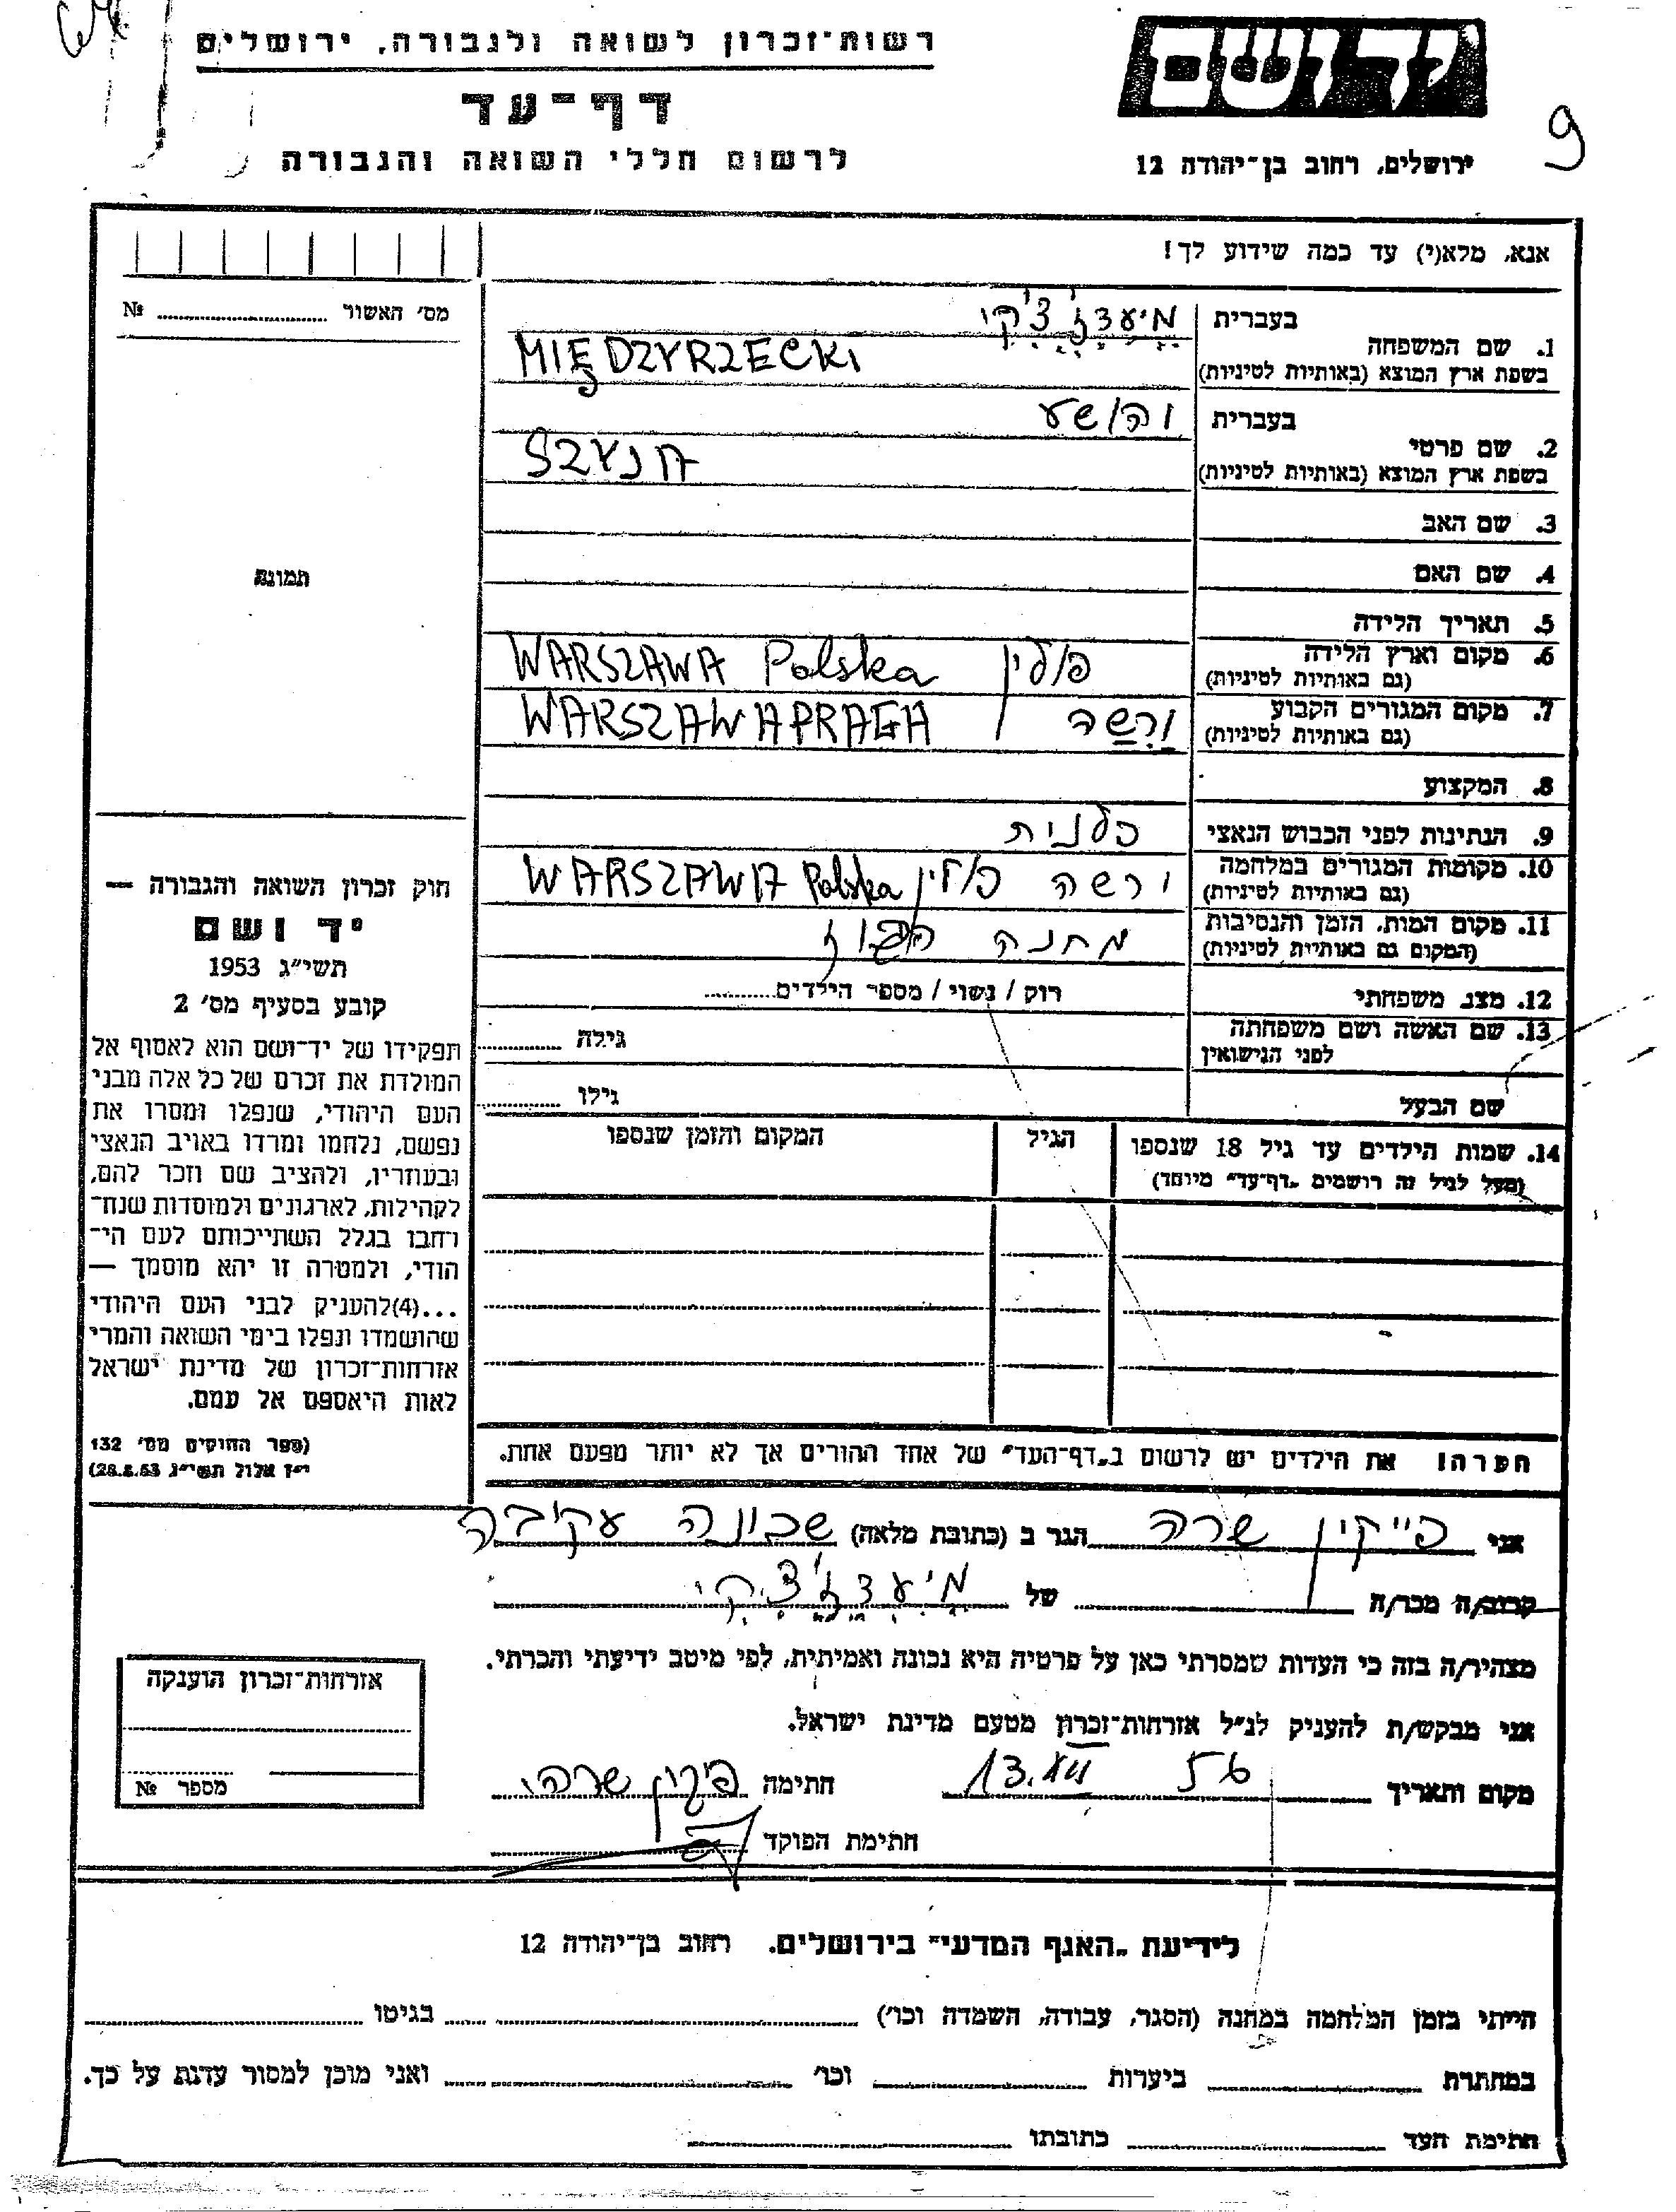 רשות־זכרון לשואה ולגבורה, ירושלים
יד ושם
דף־עד
9
לרשום חללי השואה והגבורה
ירושלים, רחוב בן־יהודה 12
אנא, מלא(י) עד כמה שידוע לך!
מס׳ האשור № 
בעברית
1. שם המשפחה
בשפת ארץ המוצא (באותיות לטיניות) MIĘDZYRZECKI
בעברית
2. שם פרטי
בשפת ארץ המוצא (באותיות לטיניות)
3. שם האב
4. שם האם
תמונה
5. תאריך הלידה
6. מקום וארץ הלידה פולין WARSZAWA Polska
(גם באותיות לטיניות)
7. מקום המגורים הקבוע וַרְשַׁה WARSZAWA PRAGA
(גם באותיות לטיניות)
8. המקצוע
9. הנתינות לפני הכבוש הנאצי
10. מקומות המגורים במלחמה ורשה פולין WARSZAWA Polska
(גם באותיות לטיניות)
11. מקום המות, הזמן והנסיבות מחנה
(המקום גם באותיות לטיניות)
12. מצב משפחתי רוק / נשוי / מספר הילדים
13. שם האשה ושם משפחתה גילה
לפני הנישואין
שם הבעל גילו
14. שמות הילדים עד גיל 18 שנספו הגיל המקום והזמן שנספו
(מעל לגיל זה רושמים „דף־עד” מיוחד)
חוק זכרון השואה והגבורה —
יד ושם
תשי״ג 1953
קובע בסעיף מס׳ 2
תפקידו של יד־ושם הוא לאסוף אל
המולדת את זכרם של כל אלה מבני
העם היהודי, שנפלו ומסרו את
נפשם, נלחמו ומרדו באויב הנאצי
ובעוזריו, ולהציב שם וזכר להם,
לקהילות, לארגונים ולמוסדות שנח־
רחבו בגלל השתייכותם לעם הי־
הודי, ולמטרה זו יהא מוסמך —
...(4)להעניק לבני העם היהודי
שהושמדו ונפלו בימי השואה והמרי
אזרחות־זכרון של מדינת ישראל
לאות היאספם אל עמם.
(ספר החוקים מס׳ 132
י״ז אלול תשי״ג 28.8.53)
הערה! את הילדים יש לרשום ב„דף־העד” של אחד ההורים אך לא יותר מפעם אחת.
אני פייקין שרה הגר ב (כתובת מלאה) שכונה עקיבה
קרוב/ה מכר/ה של
מצהיר/ה בזה כי העדות שמסרתי כאן על פרטיה היא נכונה ואמיתית, לפי מיטב ידיעתי והכרתי.
אני מבקש/ת להעניק לנ״ל אזרחות־זכרון מטעם מדינת ישראל.
מקום ותאריך 56 חתימה
חתימת הפוקד
אזרחות־זכרון הוענקה
מספר №
לידיעת „האגף המדעי” בירושלים. רחוב בן־יהודה 12
הייתי בזמן המלחמה במחנה (הסגר, עבודה, השמדה וכו׳) בגיטו
במחתרת ביערות וכו׳ ואני מוכן למסור עדות על כך.
חתימת העד כתובתו